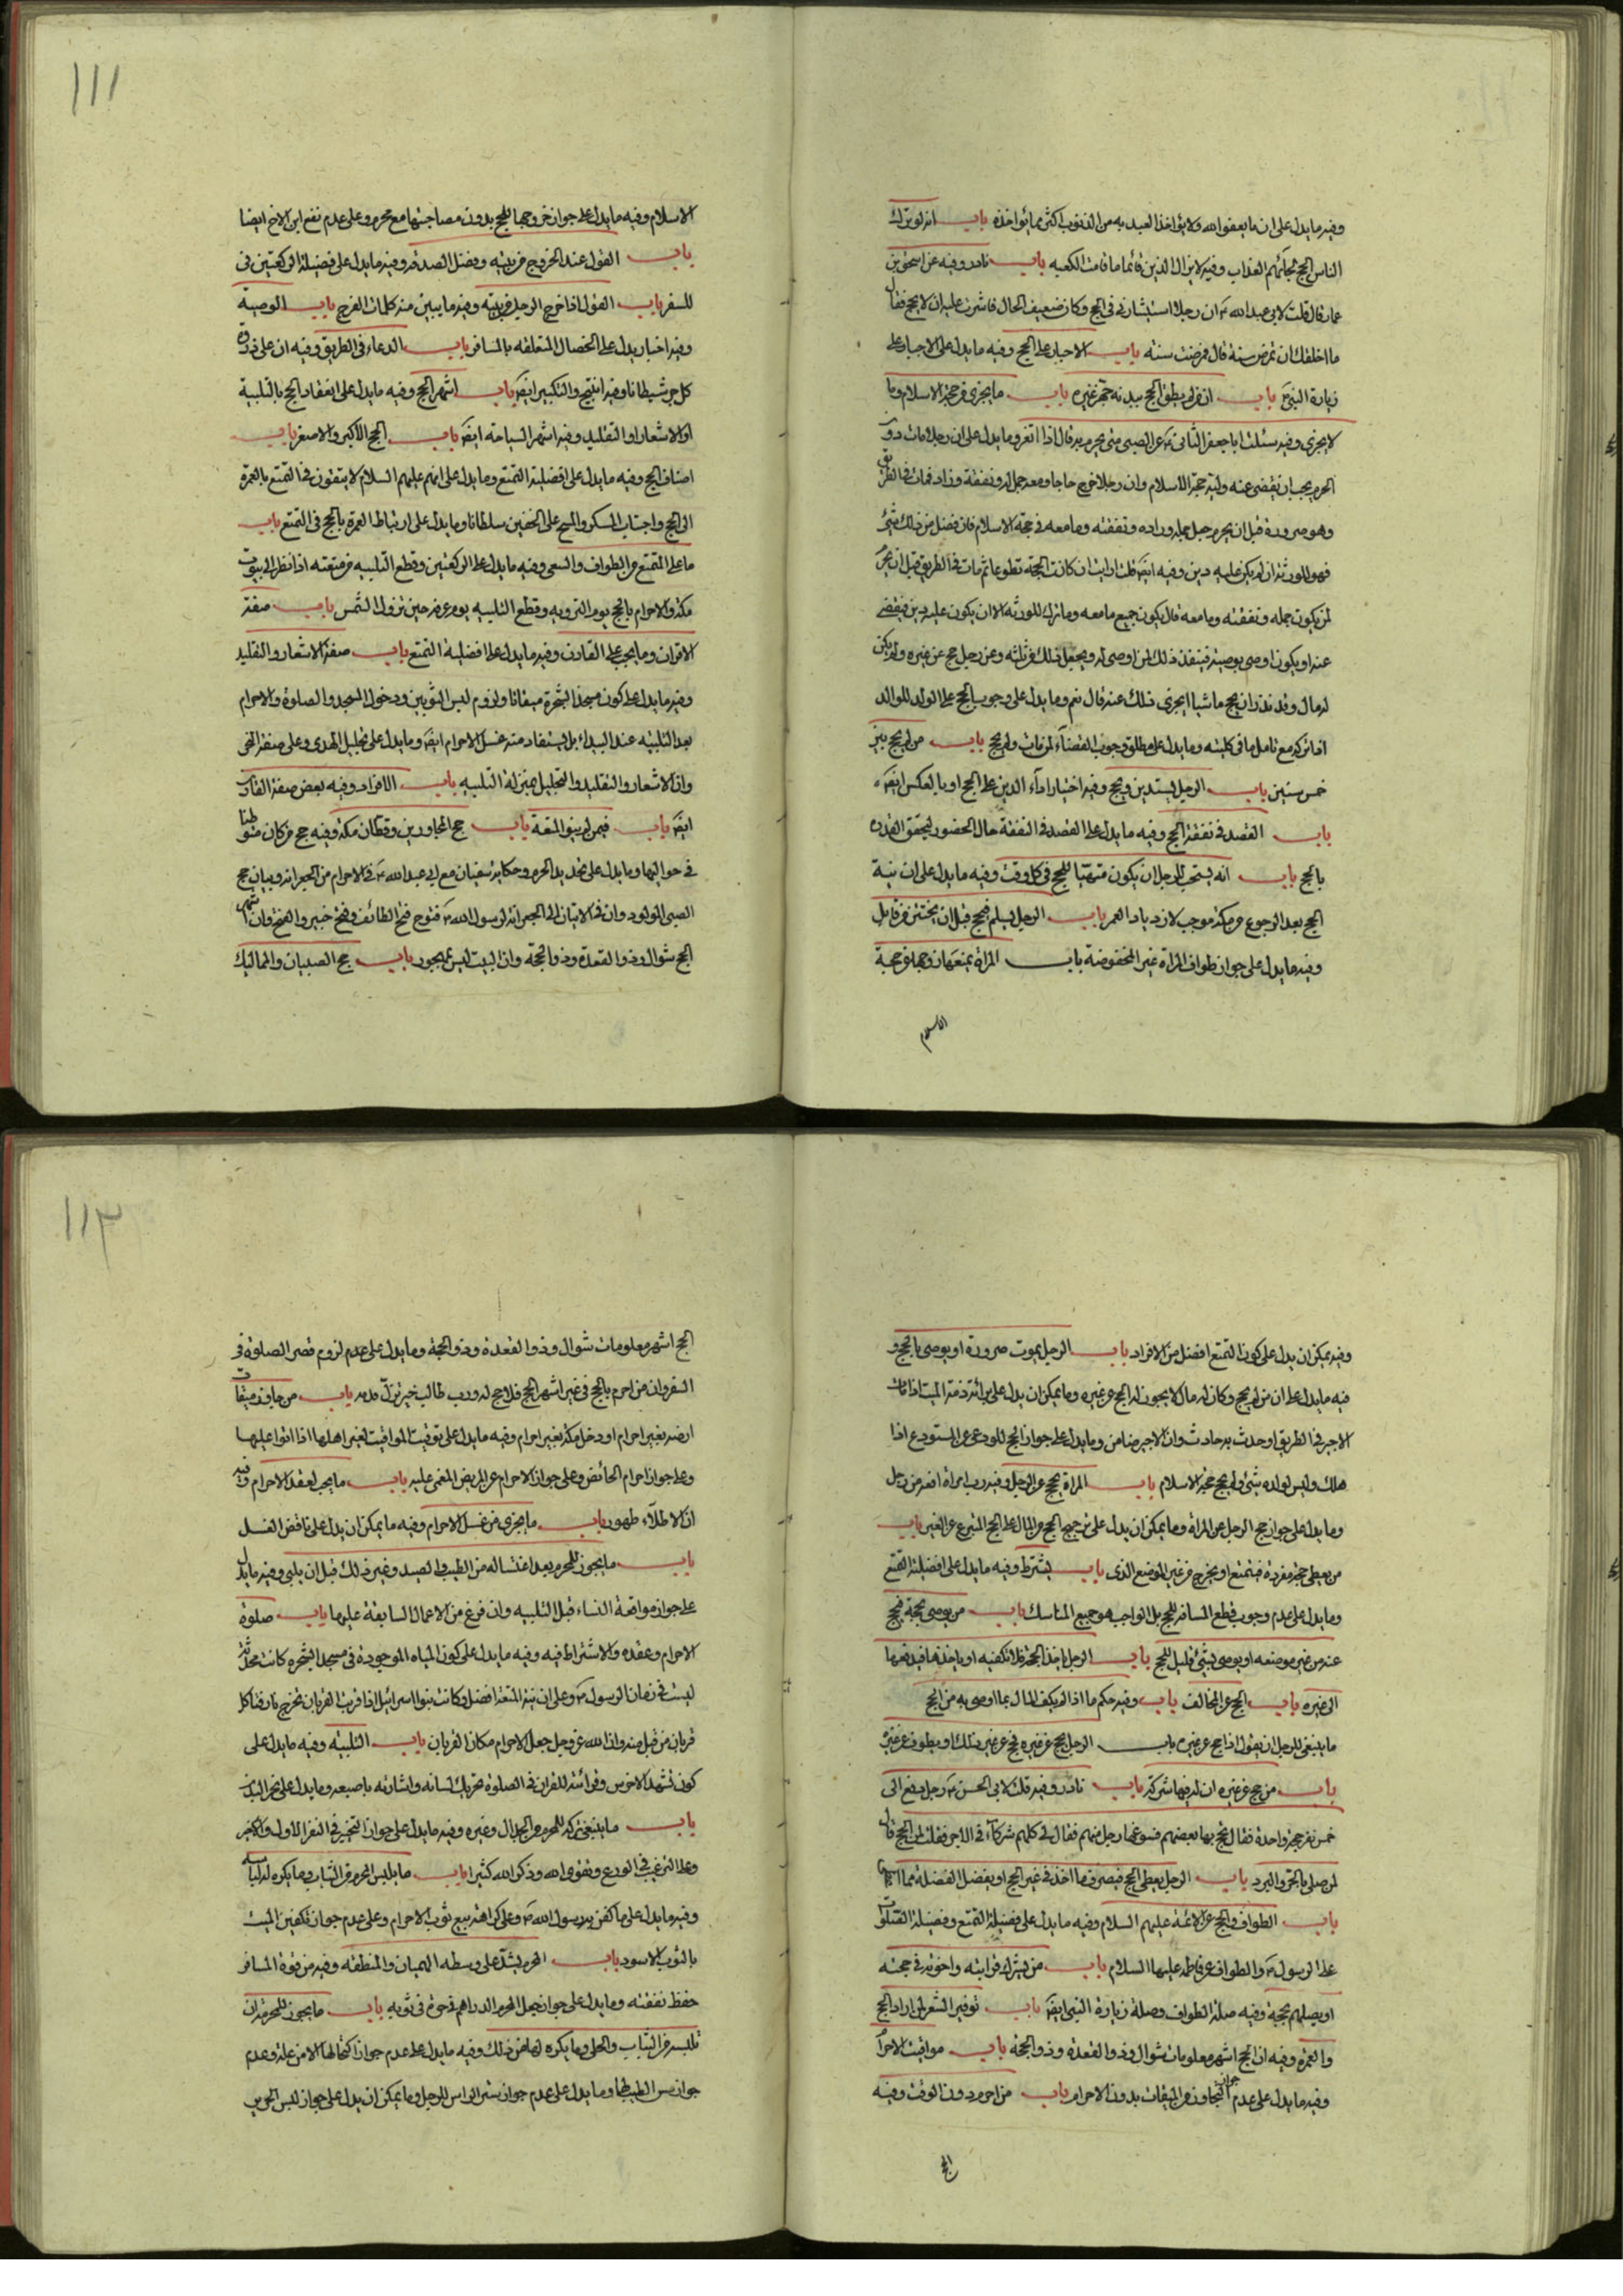 وفيه ما يدل على ان ما يعفو الله ولا يؤاخذ العبد به من الذنوب اكثر مما يؤاخذه باب انه لو ترك
الناس الحج لجاءهم العذاب وفيه لا يزال الدين قائما ما قامت الكعبه باب نادر وفيه عن اسحق بن
عمار قال قلت لابي عبد الله ع ان رجلا استشارني في الحج وكان ضعيف الحال فاشرت عليه ان لا يحج فقال
ما اخلقك ان تمرض سنة قال فمرضت سنته باب الاجبار على الحج وفيه ما يدل على الاجبار على
زيارة النبي ص باب ان من لم يطق الحج ببدنه جهز غيره باب ما يجزي من حجة الاسلام وما
لا يجزي وفيه سئلت ابا جعفر الثاني ع عن الصبي متى يحرم به قال اذا اثغر وما يدل على ان رجلا مات دون
الحرم يجب ان يقضي عنه وليه حجة الاسلام وان رجلا خرج حاجا ومعه جمل له ونفقة وزاد فمات في الطريق
وهو صرورة قبل ان يحرم جعل جمله وزاده ونفقته وما معه في حجة الاسلام فان فضل من ذلك شيئ
فهو للورثة ان لم يكن عليه دين وفيه ايضا قلت ارايت ان كانت الحجة تطوعا ثم مات في الطريق قبل ان يحرم
لمن يكون جمله ونفقته وما معه قال يكون جميع ما معه وما ترك للورثه الا ان يكون عليه دين فيقضى
عنه او يكون اوصى بوصية فينفذ ذلك لمن اوصى له ويجعل ذلك من ثلثه وعن رجل حج عن غيره ولم يكن
له مال وقد نذر ان يحج ماشيا ايجزي ذلك عنه قال نعم وما يدل على وجوب الحج على الولد للوالد
اذا تركه مع تامل ما في كليته وما يدل على مطلق وجوب القضاء لمن مات ولم يحج باب من لم يحج بين
خمس سنين باب الرجل يستدين ويحج وفيه اختيار اداء الدين على الحج او بالعكس ايضا
باب القصد في نفقة الحج وفيه ما يدل على القصد في النفقة حال الحضور ليحقق القدره
بالحج باب انه يستحب للرجل ان يكون متهيئا للحج في كل وقت وفيه ما يدل على ان نية
الحج بعد الرجوع من مكة موجب لازدياد العمر باب الرجل يسلم فيحج قبل ان يختتن
وفيه ما يدل على جواز طواف المراة غير المخفوضة باب المراة يمنعها زوجها من حجة
الاسلام
١١١
الاسلام وفيه ما يدل على جواز خروجها للحج بدون مصاحبتها مع محرم وعلى عدم نفع ابن الاخ ايضا
باب القول عند الخروج من بيته وفضل الصدقة وفيه ما يدل على فضيلة الركعتين في
للسفر باب القول اذا خرج الرجل من بيته وفيه ما يبين منه كلمات الفرج باب الوصية
وفيه اخبار يدل على الخصال المتعلقه بالمسافر باب الدعاء في الطريق وفيه ان على ذروة
كل جسر شيطانا وفيه التسبيح والتكبير ايضا باب اشهر الحج وفيه ما يدل على انعقاد الحج بالتلبية
او الاشعار او التقليد وفيه اشهر السياحه ايضا باب الحج الاكبر والاصغر باب
اصناف الحج وفيه ما يدل على افضلية التمتع وما يدل على انهم عليهم السلام لا يتقون في التمتع بالعمرة
الى الحج واجتناب المسكر والمسح على الخفين سلطانا وما يدل على ارتباط العمرة بالحج في التمتع باب
ما على المتمتع من الطواف والسعي وفيه ما يدل على الركعتين وقطع التلبيه من متعته اذا نظر الى بيوت
مكة والاحرام بالحج يوم الترويه وقطع التلبيه يوم عرفه حين تزول الشمس باب صفة
الاقران وما يجب على القارن وفيه ما يدل على افضلية التمتع باب صفة الاشعار والتقليد
وفيه ما يدل على كون مسجد الشجرة ميقاتا ولزوم لبس الثوبين ودخول المسجد والصلوة والاحرام
بعد التلبيه عند البيداء بل يستفاد منه غسل الاحرام ايضا وما يدل على تجليل الهدي وعلى صفة النحر
وان الاشعار والتقليد والتجليل بمنزلة التلبيه باب الافراد وفيه بعض صفة القارن
ايضا باب فيمن لم ينو المتعة باب حج المجاورين وقطان مكة وفيه حج من كان متوطنا
في حواليها وما يدل على تحديد الحرم وحكاية سفيان مع ابي عبد الله ع في الاحرام من الجعرانه وبيان حج
الصبي المولود وان في الاتيان الى الجعرانة لرسول الله ص فتوح فتح الطائف وفتح خيبر والفتح وان اشهر
الحج شوال وذو القعدة وذو الحجة وان البيت ليس بمهجور باب حج الصبيان والمماليك
وفيه يمكن ان يدل على كون التمتع افضل من الافراد باب الرجل يموت صرورة او يوصي بالحج و
فيه ما يدل على ان من لم يحج وكان له مال لا يجوز له الحج عن غيره وما يمكن ان يدل على برائة ذمة الميت اذا مات
الاجير في الطريق او حدث به حادث وان الاجير ضامن وما يدل على جواز الحج للودعي عن المستودع اذا
هلك وليس لولده شيئ ولم يحج حجة الاسلام باب المراة يحج عن الرجل وفيه رب امراة افقه من رجل
وما يدل على جواز حج الرجل عن المراة وما يمكن ان يدل على ترجيح الحج من المال على الحج المتبرع عن الغير باب
من يعطى حجة مفردة فيتمتع او يخرج من غير الموضع الذي باب يشترط وفيه ما يدل على افضلية التمتع
وما يدل على عدم وجوب قطع المسافة للحج بل الواجب هو جميع المناسك باب من يوصي بحجة فيحج
عنه من غير موضعه او يوصي بشيئ قليل للحج باب الرجل ياخذ الحجة فلا تكفيه او ياخذها فيدفعها
الى غيره باب الحج عن المخالف باب وفيه حكم ما اذا لم يكف المال بما اوصى به من الحج
ما ينبغي للرجل ان يقول اذا حج عن غيره باب الرجل يحج عن غيره فحج عن غير ذلك او يطوف عن غيره
باب من حج عن غيره ان له فيها شركة باب نادر وفيه قلت لابي الحسن ع رجل دفع الى
خمس نفر حجة واحدة فقال يحج بها بعضهم فسوغها رجل منهم فقال لي كلهم شركاء في الاجر فقلت لمن الحج قال
لمن صلى بالحر والبرد باب الرجل يعطى الحج فيصرف ما اخذ في غير الحج او يفضل الفضلة مما اعطي
باب الطواف والحج عن الائمة عليهم السلام وفيه ما يدل على فضيلة التمتع وفضيلة الصلوات
على الرسول ص والطواف عن فاطمه عليها السلام باب من يشرك قرابته واخوته في حجته
او يصلهم بحجة وفيه صلة الطواف وصلة زيارة النبي ايضا باب توفير الشعر لمن اراد الحج
والعمرة وفيه ان الحج اشهر معلومات شوال وذو القعدة وذو الحجة باب مواقيت الاحرام
وفيه ما يدل على عدم جواز التجاوز من الميقات بدون الاحرام باب من احرم دون الوقت وفيه
الحج
١١٢
الحج اشهر معلومات شوال وذو القعدة وذو الحجة وما يدل على عدم لزوم قصر الصلوة في
السفر وان من احرم بالحج في غير اشهر الحج فلا حج له ورب طالب خير تزل قدمه باب من جاوز ميقات
ارضه بغير احرام او دخل مكة بغير احرام وفيه ما يدل على توقيت المواقيت لغير اهلها اذا اتوا عليها
وعلى جواز احرام الحائض وعلى جواز الاحرام عن المريض المغمى عليه باب ما يجب لعقد الاحرام وفيه
ان الاطلاء طهور باب ما يجزي من غسل الاحرام وفيه ما يمكن ان يدل على ناقض الغسل
باب ما يجوز للمحرم بعد اغتساله من الطيب والصيد وغير ذلك قبل ان يلبي وفيه ما يدل
على جواز مواقعة النساء قبل التلبيه وان فرغ من الاعمال السابقة عليها باب صلوة
الاحرام وعقده والاشتراط فيه وفيه ما يدل على كون المياه الموجودة في مسجد الشجره كانت محدثة
ليست في زمان الرسول ص وعلى ان نية المتعة افضل وكانت بنوا اسرائيل اذا قربت القربان تخرج نار فتاكل
قربان من قبل منه وان الله عز وجل جعل الاحرام مكان القربان باب التلبيه وفيه ما يدل على
كون تشهد الاخرس وقرائته للقران في الصلوة تحريك لسانه واشارته باصبعه وما يدل على نحر البدن
باب ما ينبغي تركه للمحرم من الجدال وغيره وفيه ما يدل على جواز التخيير في النفر الاول والاخر
وعلى الترغيب في الورع وتقوى الله وذكر الله كثيرا باب ما يلبس المحرم من الثياب وما يكره له لباسه
وفيه ما يدل على ما كفن به رسول الله ص وعلى كراهة بيع ثوب الاحرام وعلى عدم جواز تكفين الميت
بالثوب الاسود باب المحرم يشد على وسطه الهميان والمنطقه وفيه من قوة المسافر
حفظ نفقته وما يدل على جواز جعل المحرم الدراهم في ثوبه باب ما يجوز للمحرمة ان
تلبسه من الثياب والحلي وما يكره لها من ذلك وفيه ما يدل على عدم جواز اكتحالها الا من علة وعدم
جواز مس الطيب لها وما يدل على عدم جواز ستر الراس للرجل وما يمكن ان يدل على جواز لبس الحرير